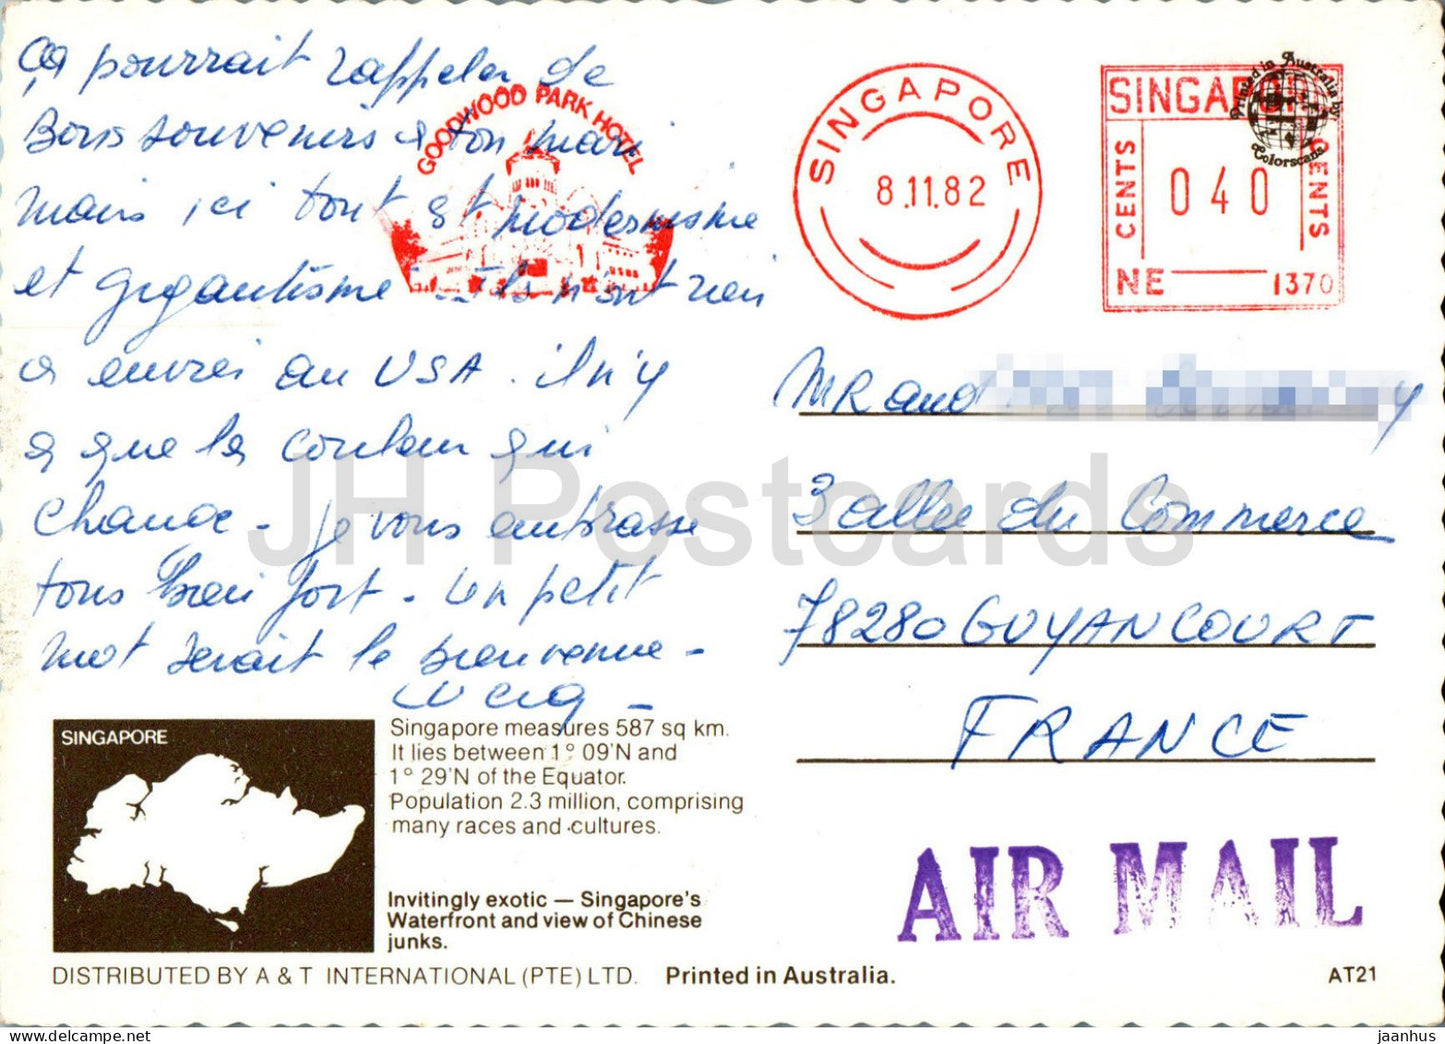 ça pourrait rappeler de
Bons souvenirs à ton mari
mais ici tout est modernisme
et gigantisme - ils n'ont rien
à envier au USA. il n'y
a que la couleur qui
change - je vous embrasse
tous bien fort - un petit
mot serait le bienvenue -
GOODWOOD PARK HOTEL
SINGAPORE
8.11.82
SINGAPORE
CENTS 040 CENTS
NE 1370
Printed in Australia by
Colorscans
MR and
3 allée du Commerce
78280 GUYANCOURT
FRANCE
AIR MAIL
JH Postcards
SINGAPORE
Singapore measures 587 sq km.
It lies between 1° 09'N and
1° 29'N of the Equator.
Population 2.3 million, comprising
many races and cultures.
Invitingly exotic — Singapore's
Waterfront and view of Chinese
junks.
DISTRIBUTED BY A & T INTERNATIONAL (PTE) LTD. Printed in Australia.
AT21
https://www.jhpostcards.com
jaanhus